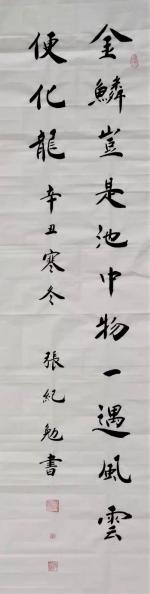 金鱗豈是池中物一遇風雲
便化龍 辛丑寒冬 張紀勉書